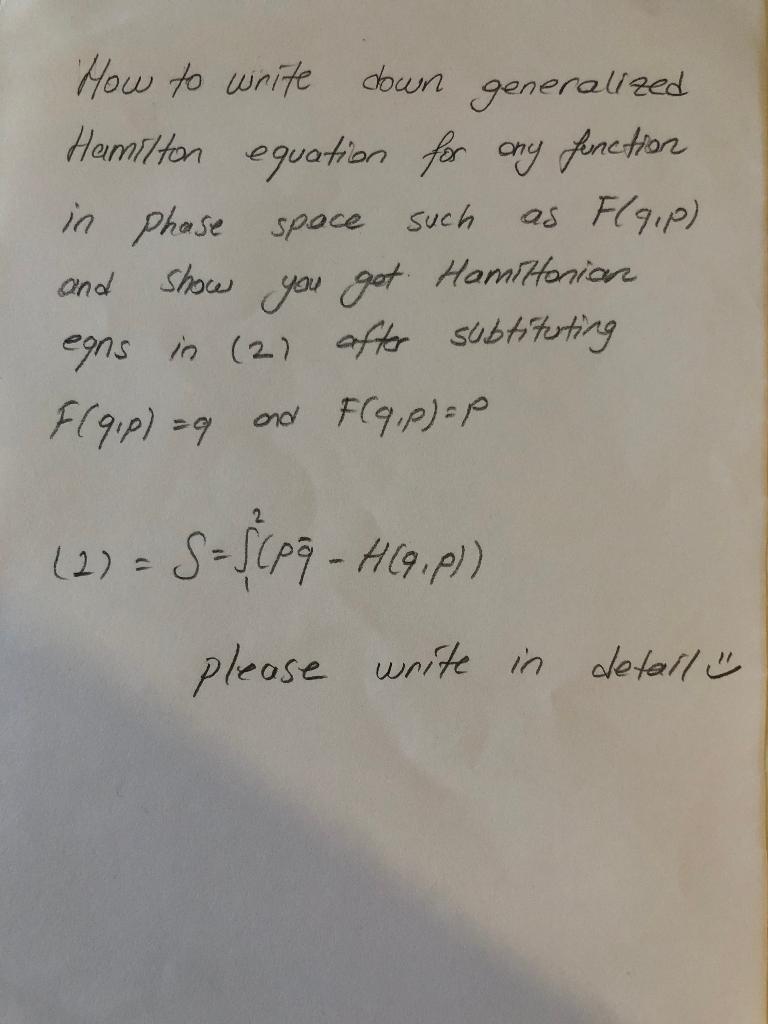 How to write down generalized
Hamilton equation for any function
in phase space such as F(q,p)
and show you get Hamiltonian
eqns in (2) after subtituting
F(q,p) = q and F(q,p) = p
(2) = S = ∫₁² (pq̄ - H(q,p))
please write in detail ü